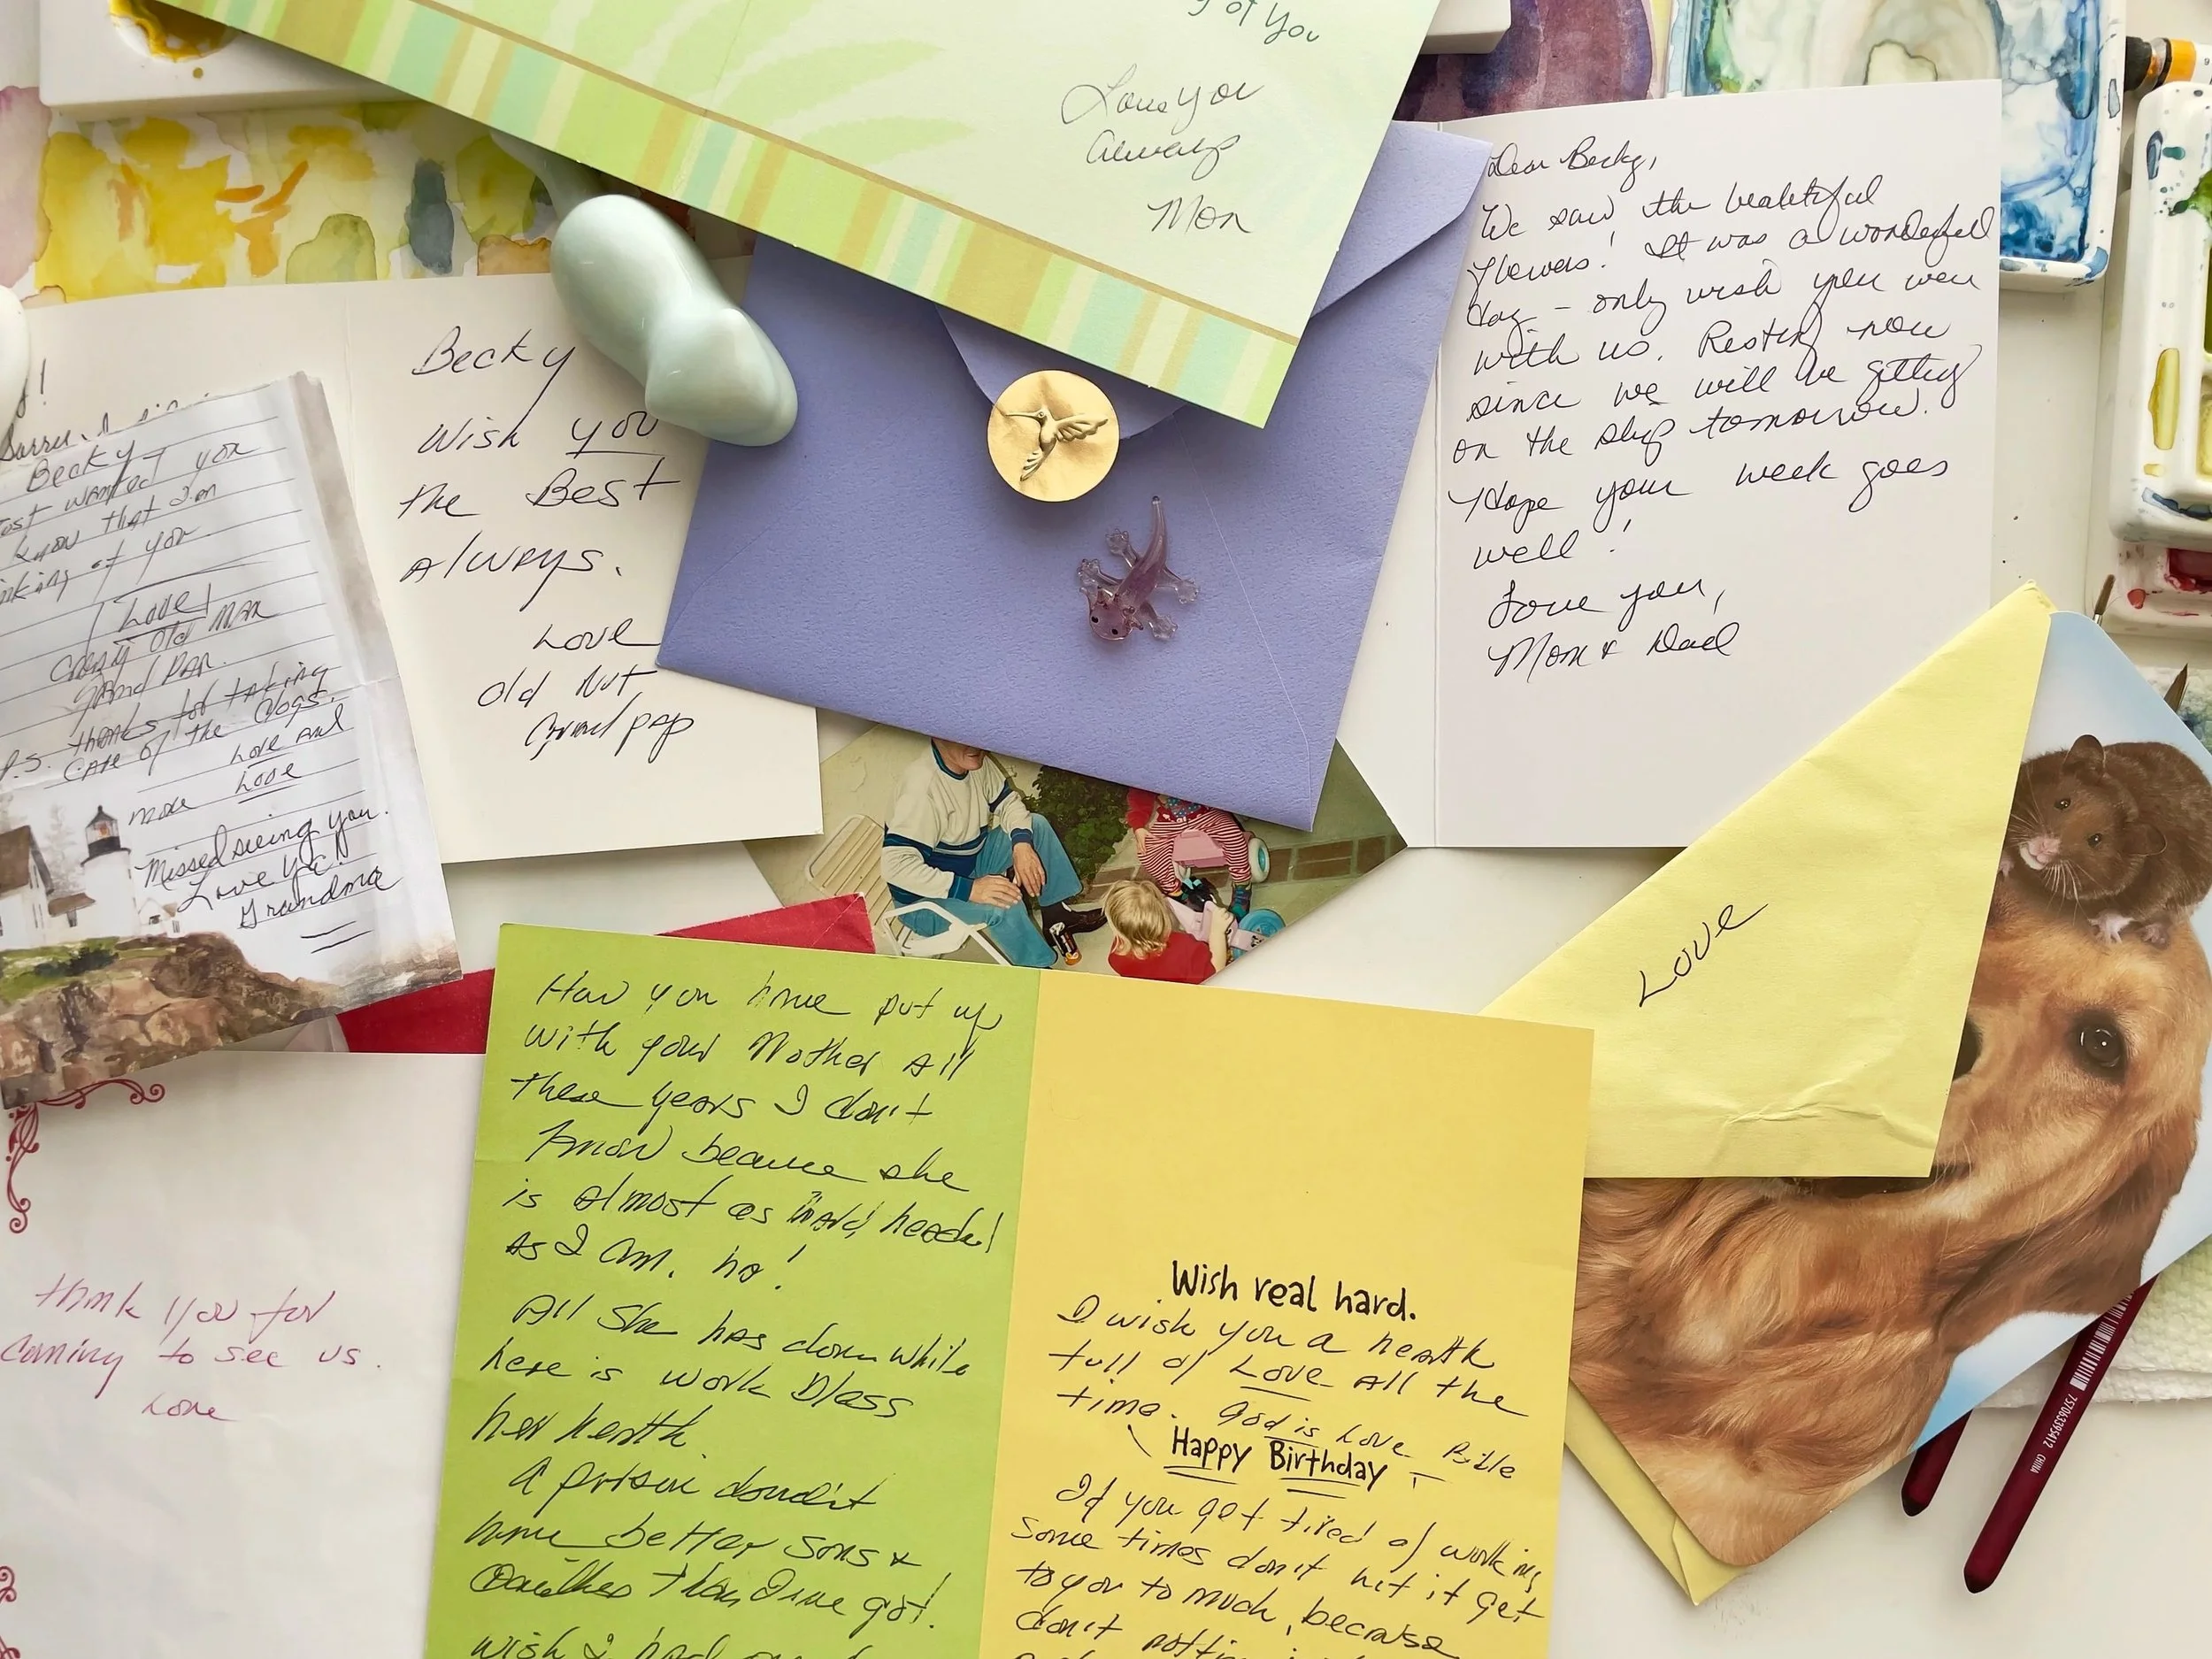 g of you
Love you
always
Mom
Dear Becky,
We saw the beautiful
flowers! It was a wonderful
day - only wish you were
with us. Resting now
since we will be getting
on the ship tomorrow.
Hope your week goes
well!
Love you,
Mom & Dad
!
Becky
Wish you
the Best
Always.
Love
old Nut
Grand pap
Becky
Just wanted you
know that I'm
nking of you
Love
Crazy old man
Grand Pap.
P.S. thanks for taking
care of the dogs.
Love and
more Love
Missed seeing you.
Love Ya!
Grandma
Love
How you have put up
with your Mother All
these years I don't
know because she
is almost as hard headed
As I am. ho!
All She has done while
here is work Bless
her heart.
A person doesn't
have better sons &
than I have got!
wish I had
Wish real hard.
I wish you a heart
full of Love All the
time. God is Love Bible
Happy Birthday
If you get tired of working
Some times don't let it get
to you to much, because
don't
thank you for
coming to see us.
Love
757063395412 CHINA